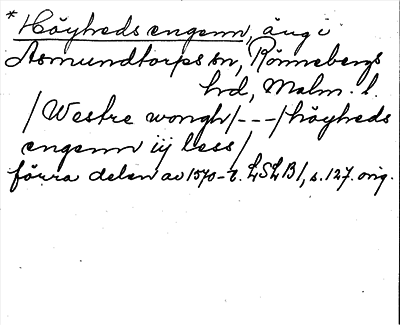 * Höyheds engenn, äng i
Asmundtorps sn, Rönnebergs
hd, Malm. l.
/Westre wongh/---/höyheds
engenn iij less/
förra delen av 1570-t. LSLB1, s. 127. orig.